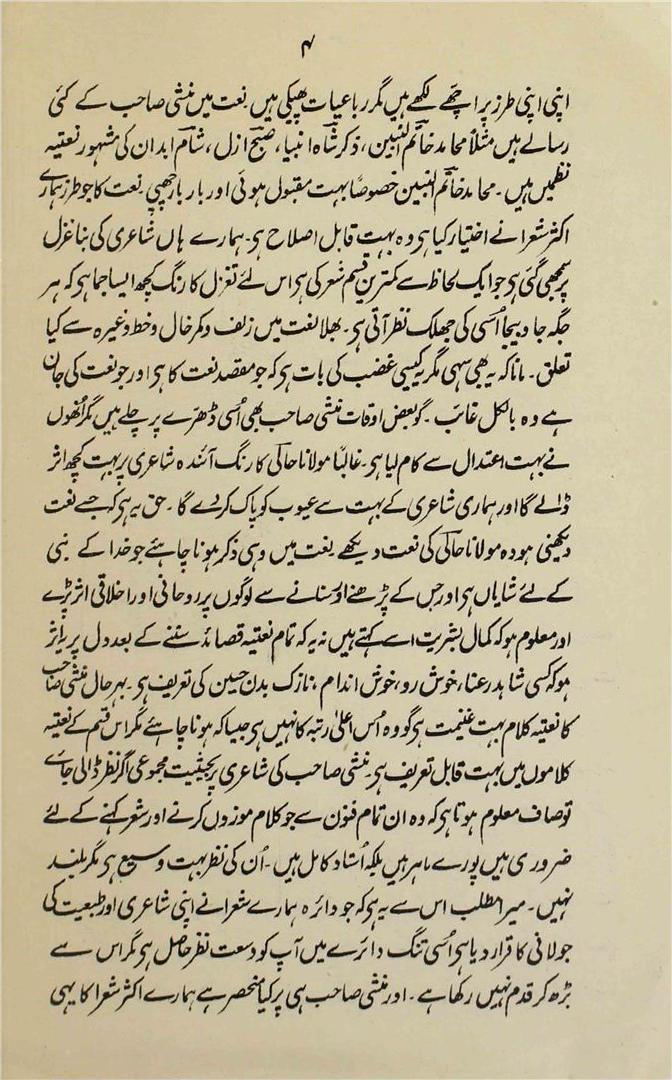 ۴
اپنی اپنی طرز پر اچھے لکھے ہیں مگر رباعیات پھیکی ہیں نعت میں منشی صاحب کے کئی
رسالے ہیں مثلاً محامد خاتم النبیین، ذکر شاہ انبیا، صبح ازل، شام ابد ان کی مشہور نعتیہ
نظمیں ہیں۔ محامد خاتم النبیین خصوصاً بہت مقبول ہوئی اور بار بار چھپی۔ نعت کا جو طرز ہمارے
اکثر شعرا نے اختیار کیا ہو وہ بہت قابل اصلاح ہو۔ ہمارے ہاں شاعری کی بنا غزل
پر سمجھی گئی ہو جو ایک لحاظ سے کمترین قسم شعر کی ہو اس لئے تغزل کا رنگ کچھ ایسا جما ہو کہ ہر
جگہ جا و بیجا اُسی کی جھلک نظر آتی ہو۔ بھلا نعت میں زلف و کمر خال و خط وغیرہ سے کیا
تعلق۔ مانا کہ یہ بھی سہی مگر یہ کیسی غضب کی بات ہو کہ جو مقصد نعت کا ہو اور جو نعت کی جان
ہے وہ بالکل غائب۔ گو بعض اوقات منشی صاحب بھی اُسی ڈھرّے پر چلے ہیں مگر اُنھوں
نے بہت اعتدال سے کام لیا ہو۔ غالباً مولانا حالی کا رنگ آئندہ شاعری پر بہت کچھ اثر
ڈالے گا اور ہماری شاعری کے بہت سے عیوب کو پاک کر دے گا۔ حق یہ ہو کہ جسے نعت
دیکھنی ہو وہ مولانا حالی کی نعت دیکھے نعت میں وہی ذکر ہونا چاہئے جو خدا کے نبی
کے لئے شایاں ہو اور جس کے پڑھنے اور سنانے سے لوگوں پر روحانی اور اخلاقی اثر پڑے
اور معلوم ہو کہ کمال بشریت اسے کہتے ہیں نہ یہ کہ تمام نعتیہ قصائد سننے کے بعد دل پر یہ اثر
ہو کہ کسی شاہد رعنا، خوش رو، خوش اندام، نازک بدن حسین کی تعریف ہو۔ بہر حال منشی صاحب
کا نعتیہ کلام بہت غنیمت ہو گو وہ اُس اعلیٰ رتبہ کا نہیں ہو جیسا کہ ہونا چاہئے مگر اس قسم کے نعتیہ
کلاموں میں بہت قابل تعریف ہو۔ منشی صاحب کی شاعری پر بحیثیت مجموعی اگر نظر ڈالی جائے
تو صاف معلوم ہوتا ہو کہ وہ ان تمام فنون سے جو کلام موزوں کرنے اور شعر کہنے کے لئے
ضروری ہیں پورے ماہر ہیں بلکہ اُستاد کامل ہیں۔ اُن کی نظر بہت وسیع ہو مگر بلند
نہیں۔ میرا مطلب اس سے یہ ہو کہ جو دائرہ ہمارے شعرا نے اپنی شاعری اور طبیعت کی
جولانی کا قرار دیا ہو اُسی تنگ دائرے میں آپ کو وسعت نظر حاصل ہو مگر اس سے
بڑھ کر قدم نہیں رکھا ہے۔ اور منشی صاحب ہی پر کیا منحصر ہے ہمارے اکثر شعرا کا یہی